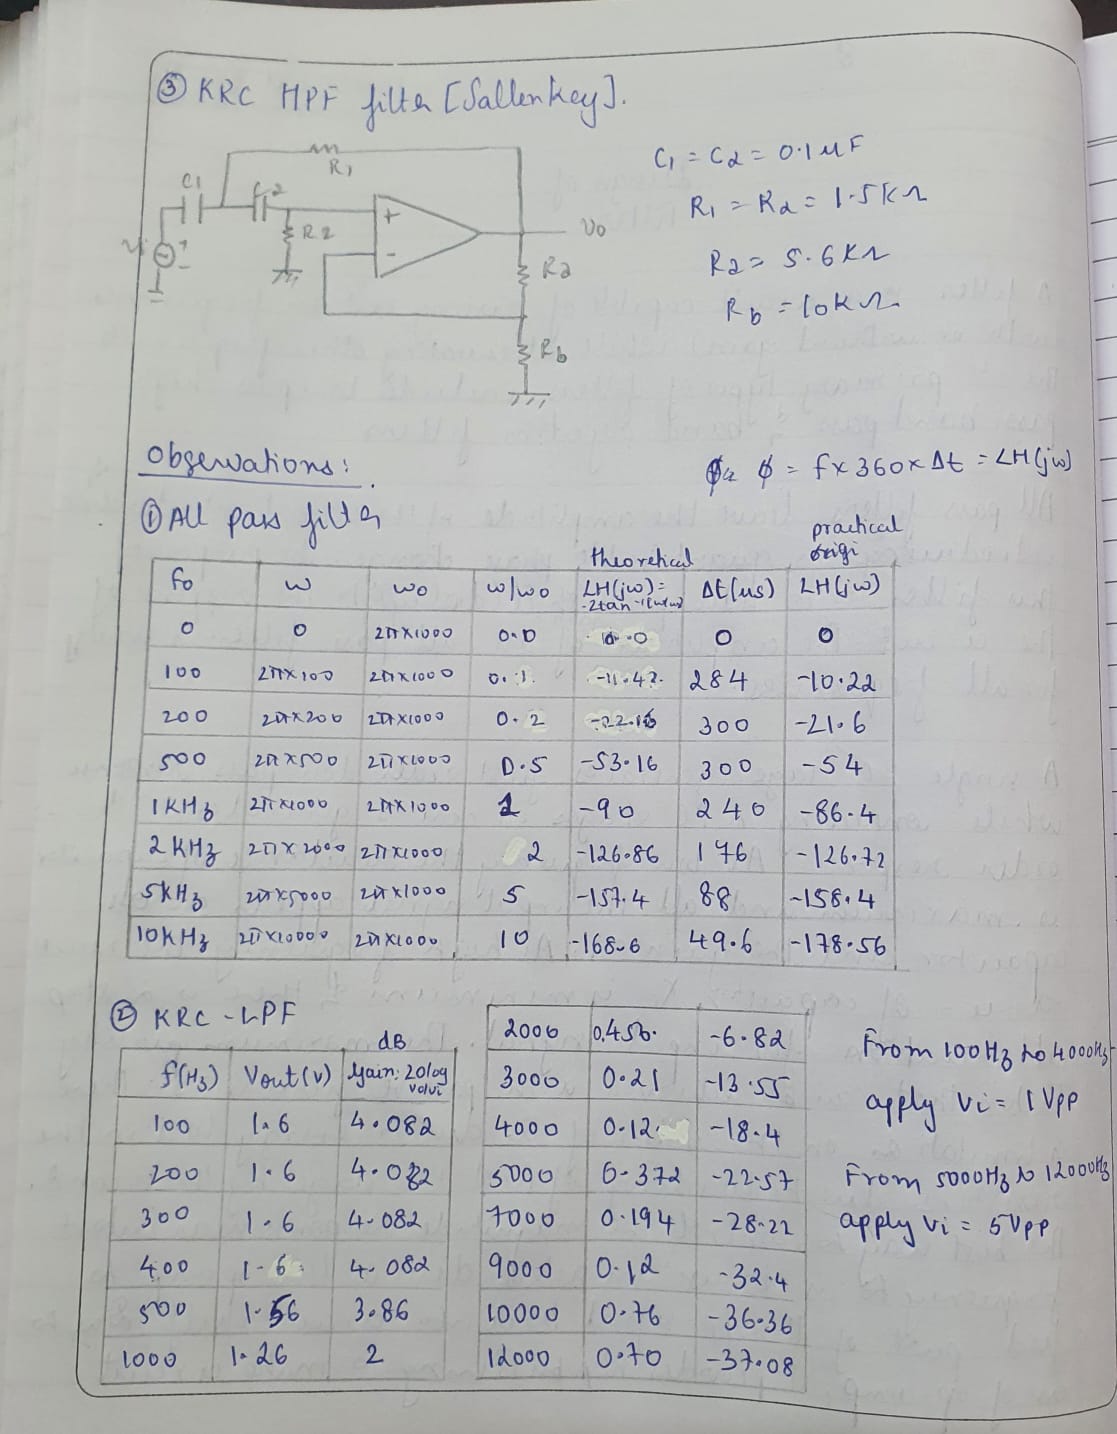 ③ KRC HPF filter [Sallen Key].
R1
C1
C2
R2
Vi
+
-
+
-
Vo
Ra
Rb
C1 = C2 = 0.1 µF
R1 = R2 = 1.5KΩ
Ra = 5.6KΩ
Rb = 10KΩ
Observations:
φ = f x 360 x Δt = ∠H(jω)
① All pass filter
theoretical practical
fo ω ωo ω/ωo ∠H(jω) = -2tan⁻¹(ω/ωo) Δt(us) ∠H(jω)
0 0 2π×1000 0.0 0.0 0 0
100 2π×100 2π×1000 0.1 -11.42 284 -10.22
200 2π×200 2π×1000 0.2 300 -21.6
500 2π×500 2π×1000 0.5 -53.16 300 -54
1KHz 2π×1000 2π×1000 1 -90 240 -86.4
2KHz 2π×2000 2π×1000 2 -126.86 176 -126.72
5KHz 2π×5000 2π×1000 5 -157.4 88 -158.4
10KHz 2π×10000 2π×1000 10 -168.6 49.6 -178.56
② KRC - LPF
dB
f(Hz) Vout(v) Gain: 20log vo/vi
100 1.6 4.082
200 1.6 4.082
300 1.6 4.082
400 1.6 4.082
500 1.56 3.86
1000 1.26 2
2000 0.456 -6.82
3000 0.21 -13.55
4000 0.12 -18.4
5000 0.372 -22.57
7000 0.194 -28.22
9000 0.12 -32.4
10000 0.76 -36.36
12000 0.70 -37.08
From 100Hz to 4000Hz
apply Vi = 1Vpp
From 5000Hz to 12000Hz
apply Vi = 5Vpp